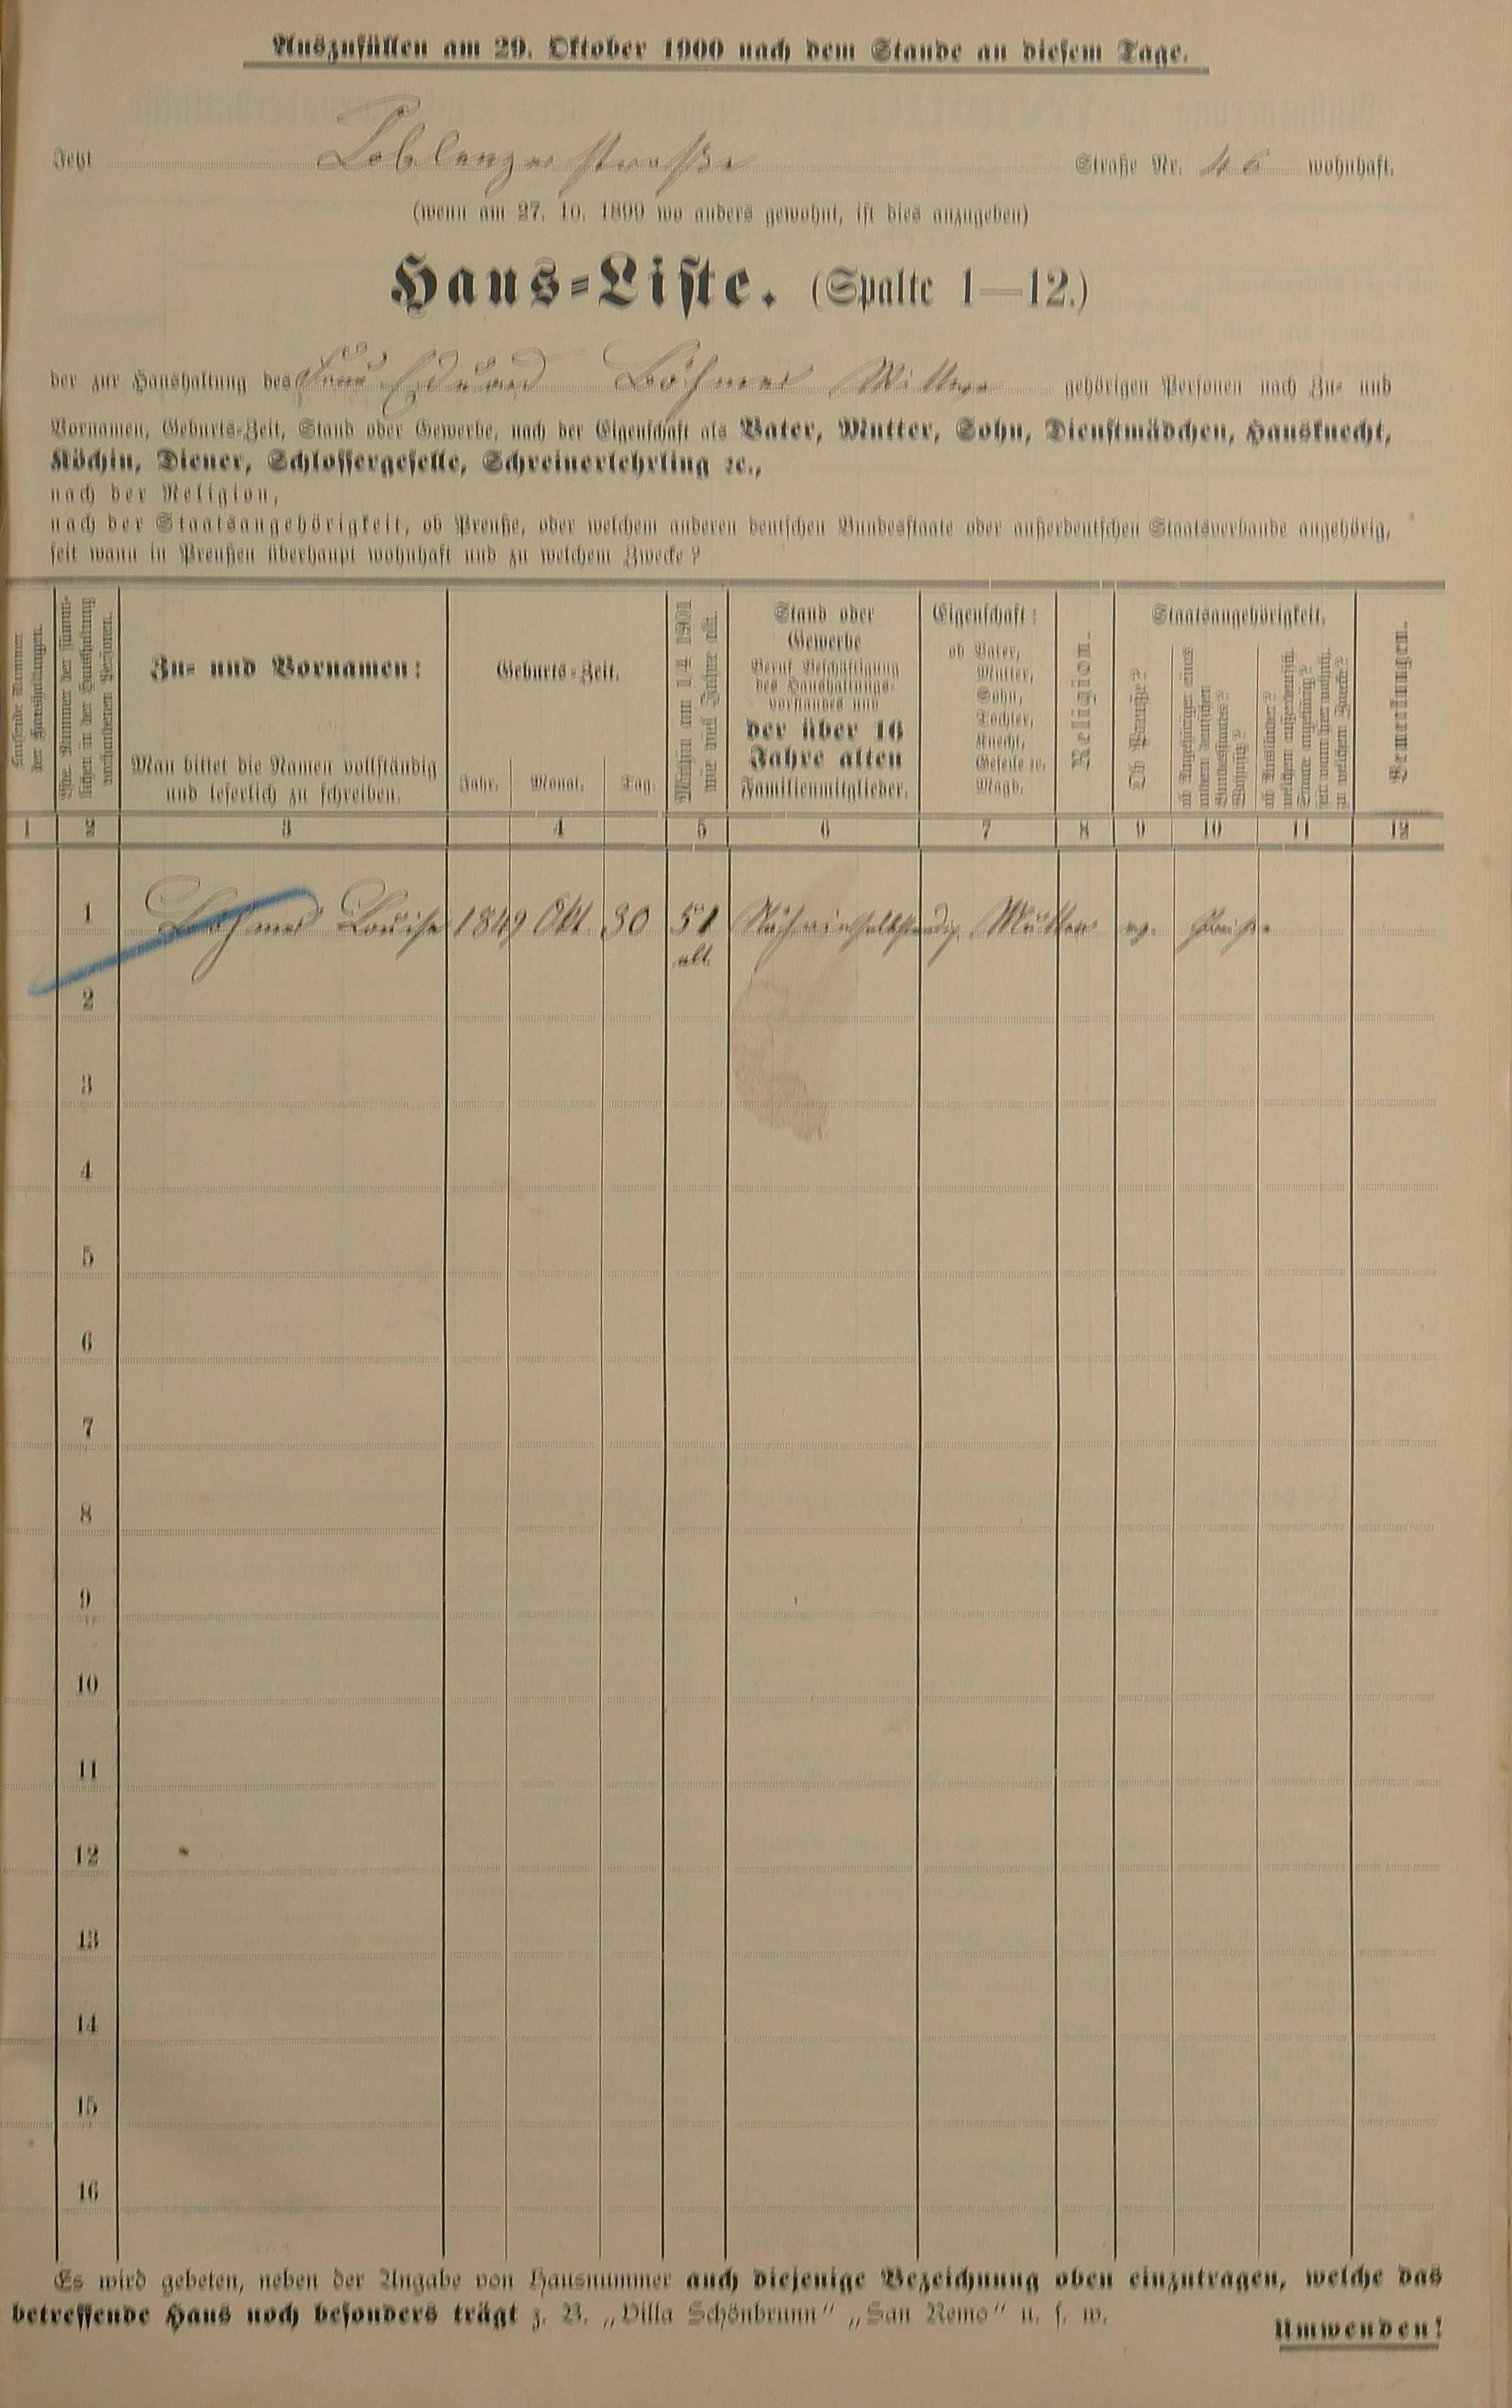 Auszufüllen am 29. Oktober 1900 nach dem Stande an diesem Tage.
Jetzt Coblenzer straße Straße Nr. 46 wohnhaft.
(wenn am 27. 10. 1899 wo anders gewohnt, ist dies anzugeben)
Haus-Liste. (Spalte 1—12.)
der zur Haushaltung des Frau Eduard Böhmer Wittwe gehörigen Personen nach Zu- und
Vornamen, Geburts-Zeit, Stand oder Gewerbe, nach der Eigenschaft als Vater, Mutter, Sohn, Dienstmädchen, Hausknecht,
Köchin, Diener, Schlossergeselle, Schreinerlehrling ꝛc.,
nach der Religion,
nach der Staatsangehörigkeit, ob Preuße, oder welchem anderen deutschen Bundesstaate oder außerdeutschen Staatsverbande angehörig,
seit wann in Preußen überhaupt wohnhaft und zu welchem Zwecke?
Laufende Nummer
der Haushaltungen.
Lfde. Nummer der sämmt-
lichen in der Haushaltung
vorhandenen Personen.
Zu- und Vornamen:
Man bittet die Namen vollständig
und leserlich zu schreiben.
Geburts-Zeit.
Jahr. Monat. Tag.
Mithin am 1/4 1901
wie viel Jahre alt.
Stand oder
Gewerbe
Beruf, Beschäftigung
des Haushaltungs-
vorstandes und
der über 16
Jahre alten
Familienmitglieder.
Eigenschaft:
ob Vater,
Mutter,
Sohn,
Tochter,
Knecht,
Geselle ꝛc.
Magd.
Religion.
Staatsangehörigkeit.
Ob Preuße?
ob Angehöriger eines
andern deutschen
Bundesstaates?
ob Ausländer?
welchem außerdeutsch.
Staate angehörig?
seit wann hier wohnh.
zu welchem Zwecke?
Bemerkungen.
1 2 3 4 5 6 7 8 9 10 11 12
1 Böhmer Louise 1849 Okt. 30 51 Näherin selbständig. Mutter ev. Preuße
alt.
2
3
4
5
6
7
8
9
10
11
12
13
14
15
16
Es wird gebeten, neben der Angabe von Hausnummer auch diejenige Bezeichnung oben einzutragen, welche das
betreffende Haus noch besonders trägt z. B. „Villa Schönbrunn" „San Remo" u. s. w.
Umwenden!